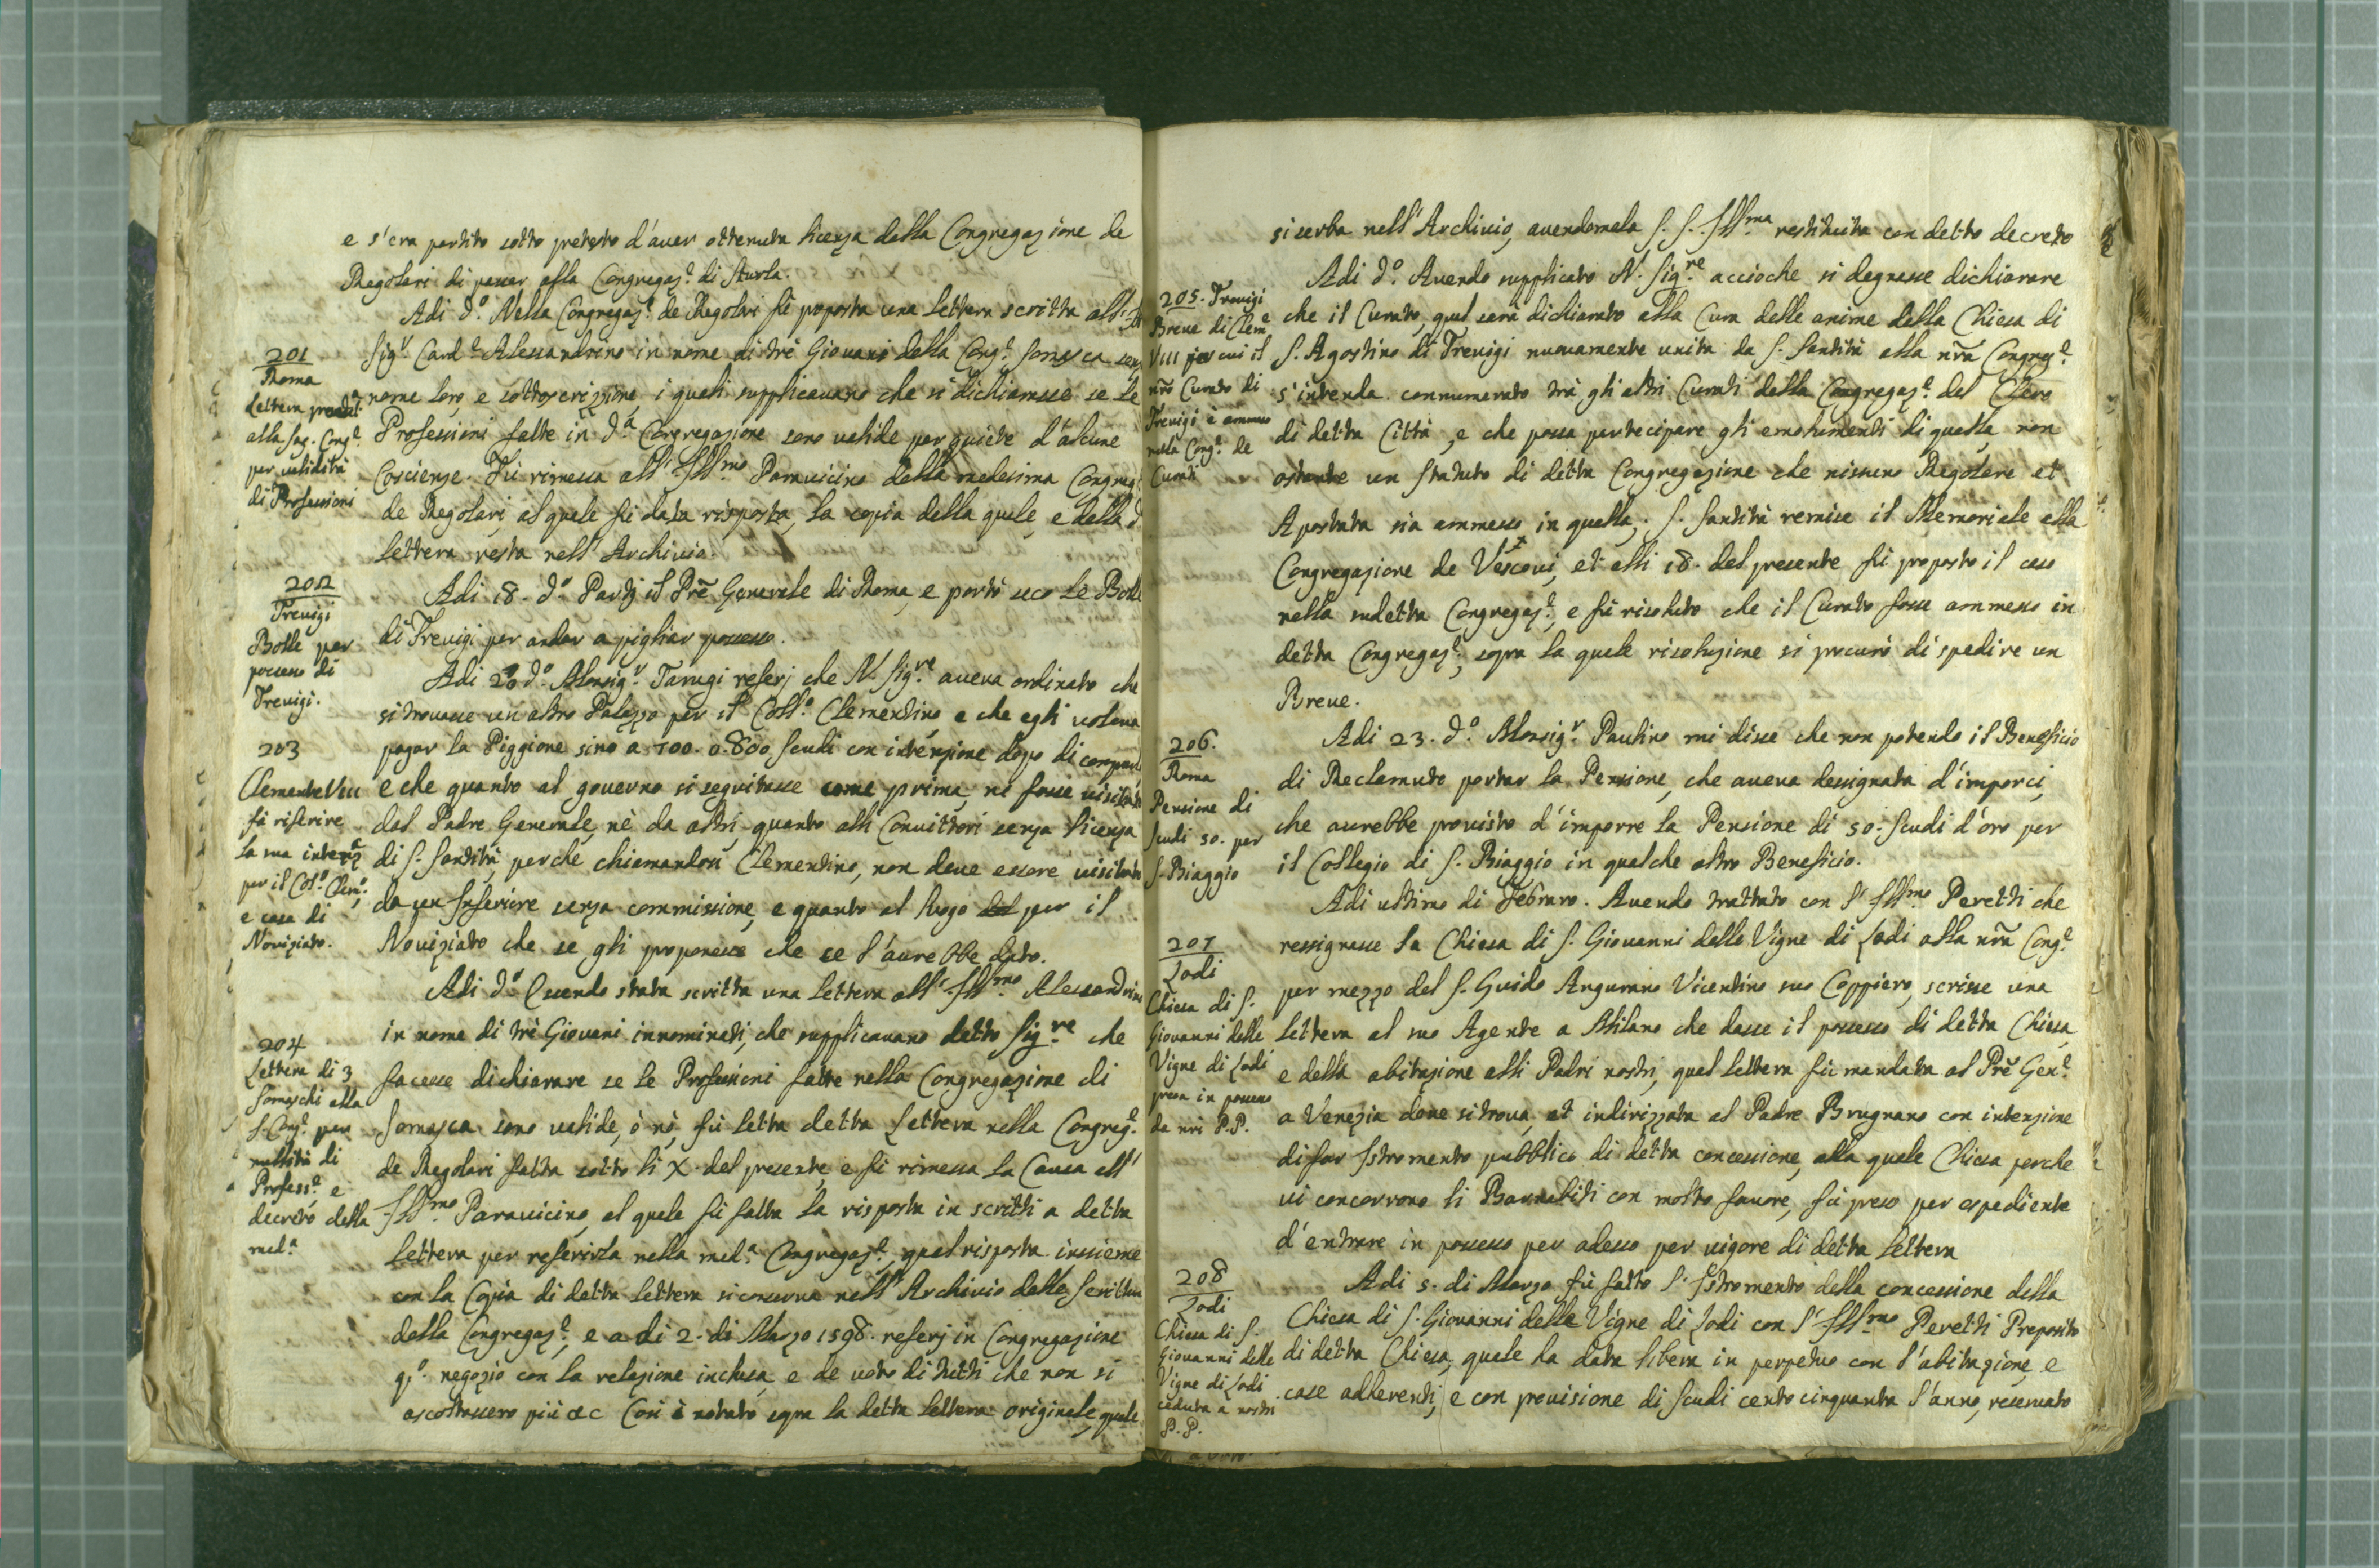 e s'era partito sotto pretesto d'auer ottenuta licenza dalla Congregazione de
Regolari di passar alla Congregaz.e di Sturla.
Adi d.o Nella Congregaz.e de Regolari fù poposta una lettera scritta all'
Sig.r Card.e Alessandrino in nome di trè Giovani della Cong.e Somasca senz
nome loro, e sottoscrizzione, i quali supplicauano che si dichiarasse se le
Professioni fatte in d.a Congregazione sono ualide per quiete d'alcune
Coscienze. Fù rimessa all' Ill.mo Parauicino della medesima Congreg
de Regolari, al quale fù data risposta, la copia della quale, e della d.
lettera resta nell' Archivio.
201
Roma
Lettera
alla Sag. Cong.e
per ualidità
di Professioni
Adi 18. d.o Partj il Prẽ Generale di Roma, e portò seco le Bolle
di Trevigi per andar a pigliar possesso.
202
Trevigi
Bolle per
possesso di
Trevigi.
Adi 20 d.o Monsig.r Tarugi referj che N. Sig.re aueua ordinato che
si trouasse un'altro Palazzo per il Coll.o Clementino e che egli uoleua
pagar la Piggione sino a 700. o 800 scudi con intenzione dopo di comprar
e che quanto al gouerno si seguitasse come prima, nè fosse uisitato
dal Padre Generale, nè da altri quanto alli Conuittori senza licenza
di S. Santità, perche chiamandosi Clementino, non deue essere uisitato
da un Inferiore senza commissione, e quanto al luogo per il
Nouiziato che se gli proponesse che se l'aurebbe dato.
203
Clemente VIII
fà riferire
la sua intenz.e
per il Col.o Clem.o
e casa di
Noviziato.
Adi d.o Essendo stata scritta una lettera all' Ill.mo Alessandrino
in nome di trè Giovani innominati, che supplicauano detto Sig.re che
facesse dichiarare se le Professioni fatte nella Congregazione di
Somasca sono ualide, ò nò, fù letta detta Lettera nella Congreg.e
de Regolari fatta sotto li X. del presente, e fù rimessa la Causa all'
Ill.mo Parauicino, al quale fù fatta la risposta in scritti a detta
Lettera per referirla nella med.a Congregaz.e, qual risposta insieme
con la Copia di detta Lettera si conserua nell' Archivio delle Scritture
della Congregaz.e, e a di 2. di Marzo 1598. referj in Congregazione
q.o negozio con la relazione inclusa, e de uoto di tutti che non si
ascoltassero più &c Così è notato sopra la detta lettera originale, quale
204
Lettera di 3
Somaschi alla
S. Cong.e per
nullità di
Profess.e e
decreto della
med.a
si serba nell' Archivio, auendomela S. S. Ill.ma restituita con detto decreto
Adi d.o Auendo supplicato N. Sig.re accioche si degnasse dichiarare
che il Curato, qual sarà dichiarato alla Cura delle anime della Chiesa di
S. Agostino di Trevigi nuouamente unita da S. Santità alla nr̃a Congreg.e
s'intenda connumerato trà gli altri Curati della Congregaz.e del Clero
di detta Città, e che possa partecipare gli emolumenti di quella, non
ostante un Statuto di detta Congregazione che nissuno Regolare et
Apostata sia ammesso in quella; S. Santità remise il Memoriale alla
Congregazione de Vescoui, et alli 18. del presente fù proposto il caso
nella sudetta Congregaz.e, e fù risoluto che il Curato fosse ammesso in
detta Congregaz.e, sopra la quale risoluzione si procurò di spedire un
Breue.
205. Trevigi
Breue di Clem.e
VIII per cui il
nr̃o Curato di
Trevigi è ammesso
nella Cong.e de
Curati
Adi 23. d.o Monsig.r Paulino mi disse che non potendo il Beneficio
di Reclamuto portar la Pensione, che aueua dessignata d'imporci,
che aurebbe prouisto d'imporre la Pensione di 50. Scudi d'oro per
il Collegio di S. Biaggio in qualche altro Beneficio.
206.
Roma
Pensione di
Scudi 50. per
S. Biaggio
Adi ultimo di Febraro. Auendo trattato con l' Ill.mo Peretti che
ressignasse la Chiesa di S. Giovanni delle Vigne di Lodi alla nr̃a Cong.e
per mezzo del S. Guido Angurano Vicentino suo Coppiero, scrisse una
lettera al suo Agente a Milano che dasse il possesso di detta Chiesa,
e della abitazione alli Padri nostri, qual lettera fù mandata al Prẽ Gen.e
a Venezia doue si troua, et indirizzata al Padre Brugnano con intenzione
di far Istromento pubblico di detta concessione, alla quale Chiesa perche
ui concorrono li Barnabiti con molto fauore, fù preso per espediente
d'entrare in possesso per adesso per uigore di detta lettera
207
Lodi
Chiesa di S.
Giovanni delle
Vigne di Lodi
presa in possesso
da nr̃i P.P.
Adi 5. di Marzo fù fatto l' Istromento della concessione della
Chiesa di S. Giovanni delle Vigne di Lodi con l' Ill.mo Peretti Preposito
di detta Chiesa, quale ha data libera in perpetuo con l'abitazione, e
case adherenti, e con prouisione di Scudi cento cinquanta l'anno, reseruato
208
Lodi
Chiesa di S.
Giovanni delle
Vigne di Lodi
ceduta a nostri
P.P.